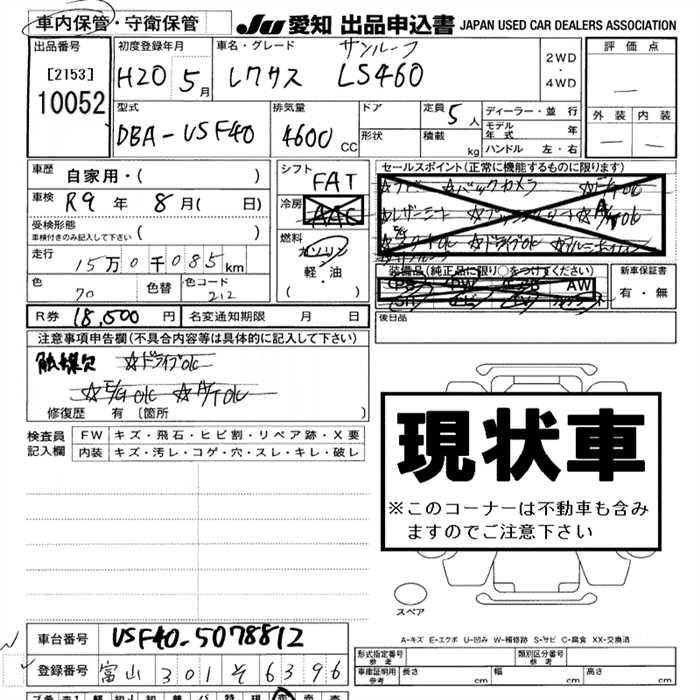 車内保管・守衛保管
JU 愛知 出品申込書 JAPAN USED CAR DEALERS ASSOCIATION
出品番号
[2153]
10052
初度登録年月
H20 5月
車名・グレード
サンルーフ
レクサス LS460
2WD
・
4WD
評価点
外装 内装
型式
DBA-USF40
排気量
4600 CC
ドア
形状
定員 5人
積載 kg
ディーラー・並行
モデル年式 年
ハンドル 左・右
車歴 自家用・( )
車検 R9 年 8 月( 日)
受検形態
車検付きのみ記入して下さい ( )
走行 15万0千085km
色 70 色替 色コード 212
シフト FAT
冷房 AAC
燃料
ガソリン
軽・油
( )
セールスポイント(正常に機能するものに限ります)
☆ナビ ☆バックカメラ ☆E/G OK
☆レザーシート ☆A/T OK
☆ドライブOK
装備品(純正品に限り○をつけてください)
PS PW AW
新車保証書
有・無
R券 18,500 円 名変通知期限 月 日
後日品
注意事項申告欄(不具合内容等は具体的に記入して下さい)
触媒欠 ☆ドライブOK
☆E/G OK ☆A/T OK
修復歴 有 〔箇所 〕
検査員記入欄
FW キズ・飛石・ヒビ割・リペア跡・X要
内装 キズ・汚レ・コゲ・穴・スレ・キレ・破レ
現状車
※このコーナーは不動車も含み
ますのでご注意下さい
スペア
A-キズ E-エクボ U-凹み W-補修跡 S-サビ C-腐食 XX-交換済
車台番号 USF40-5078812
登録番号 富山 301 そ 6396
形式指定番号
参考
類別区分番号
参考
車庫証明用
参考
長さ cm 幅 cm 高さ cm